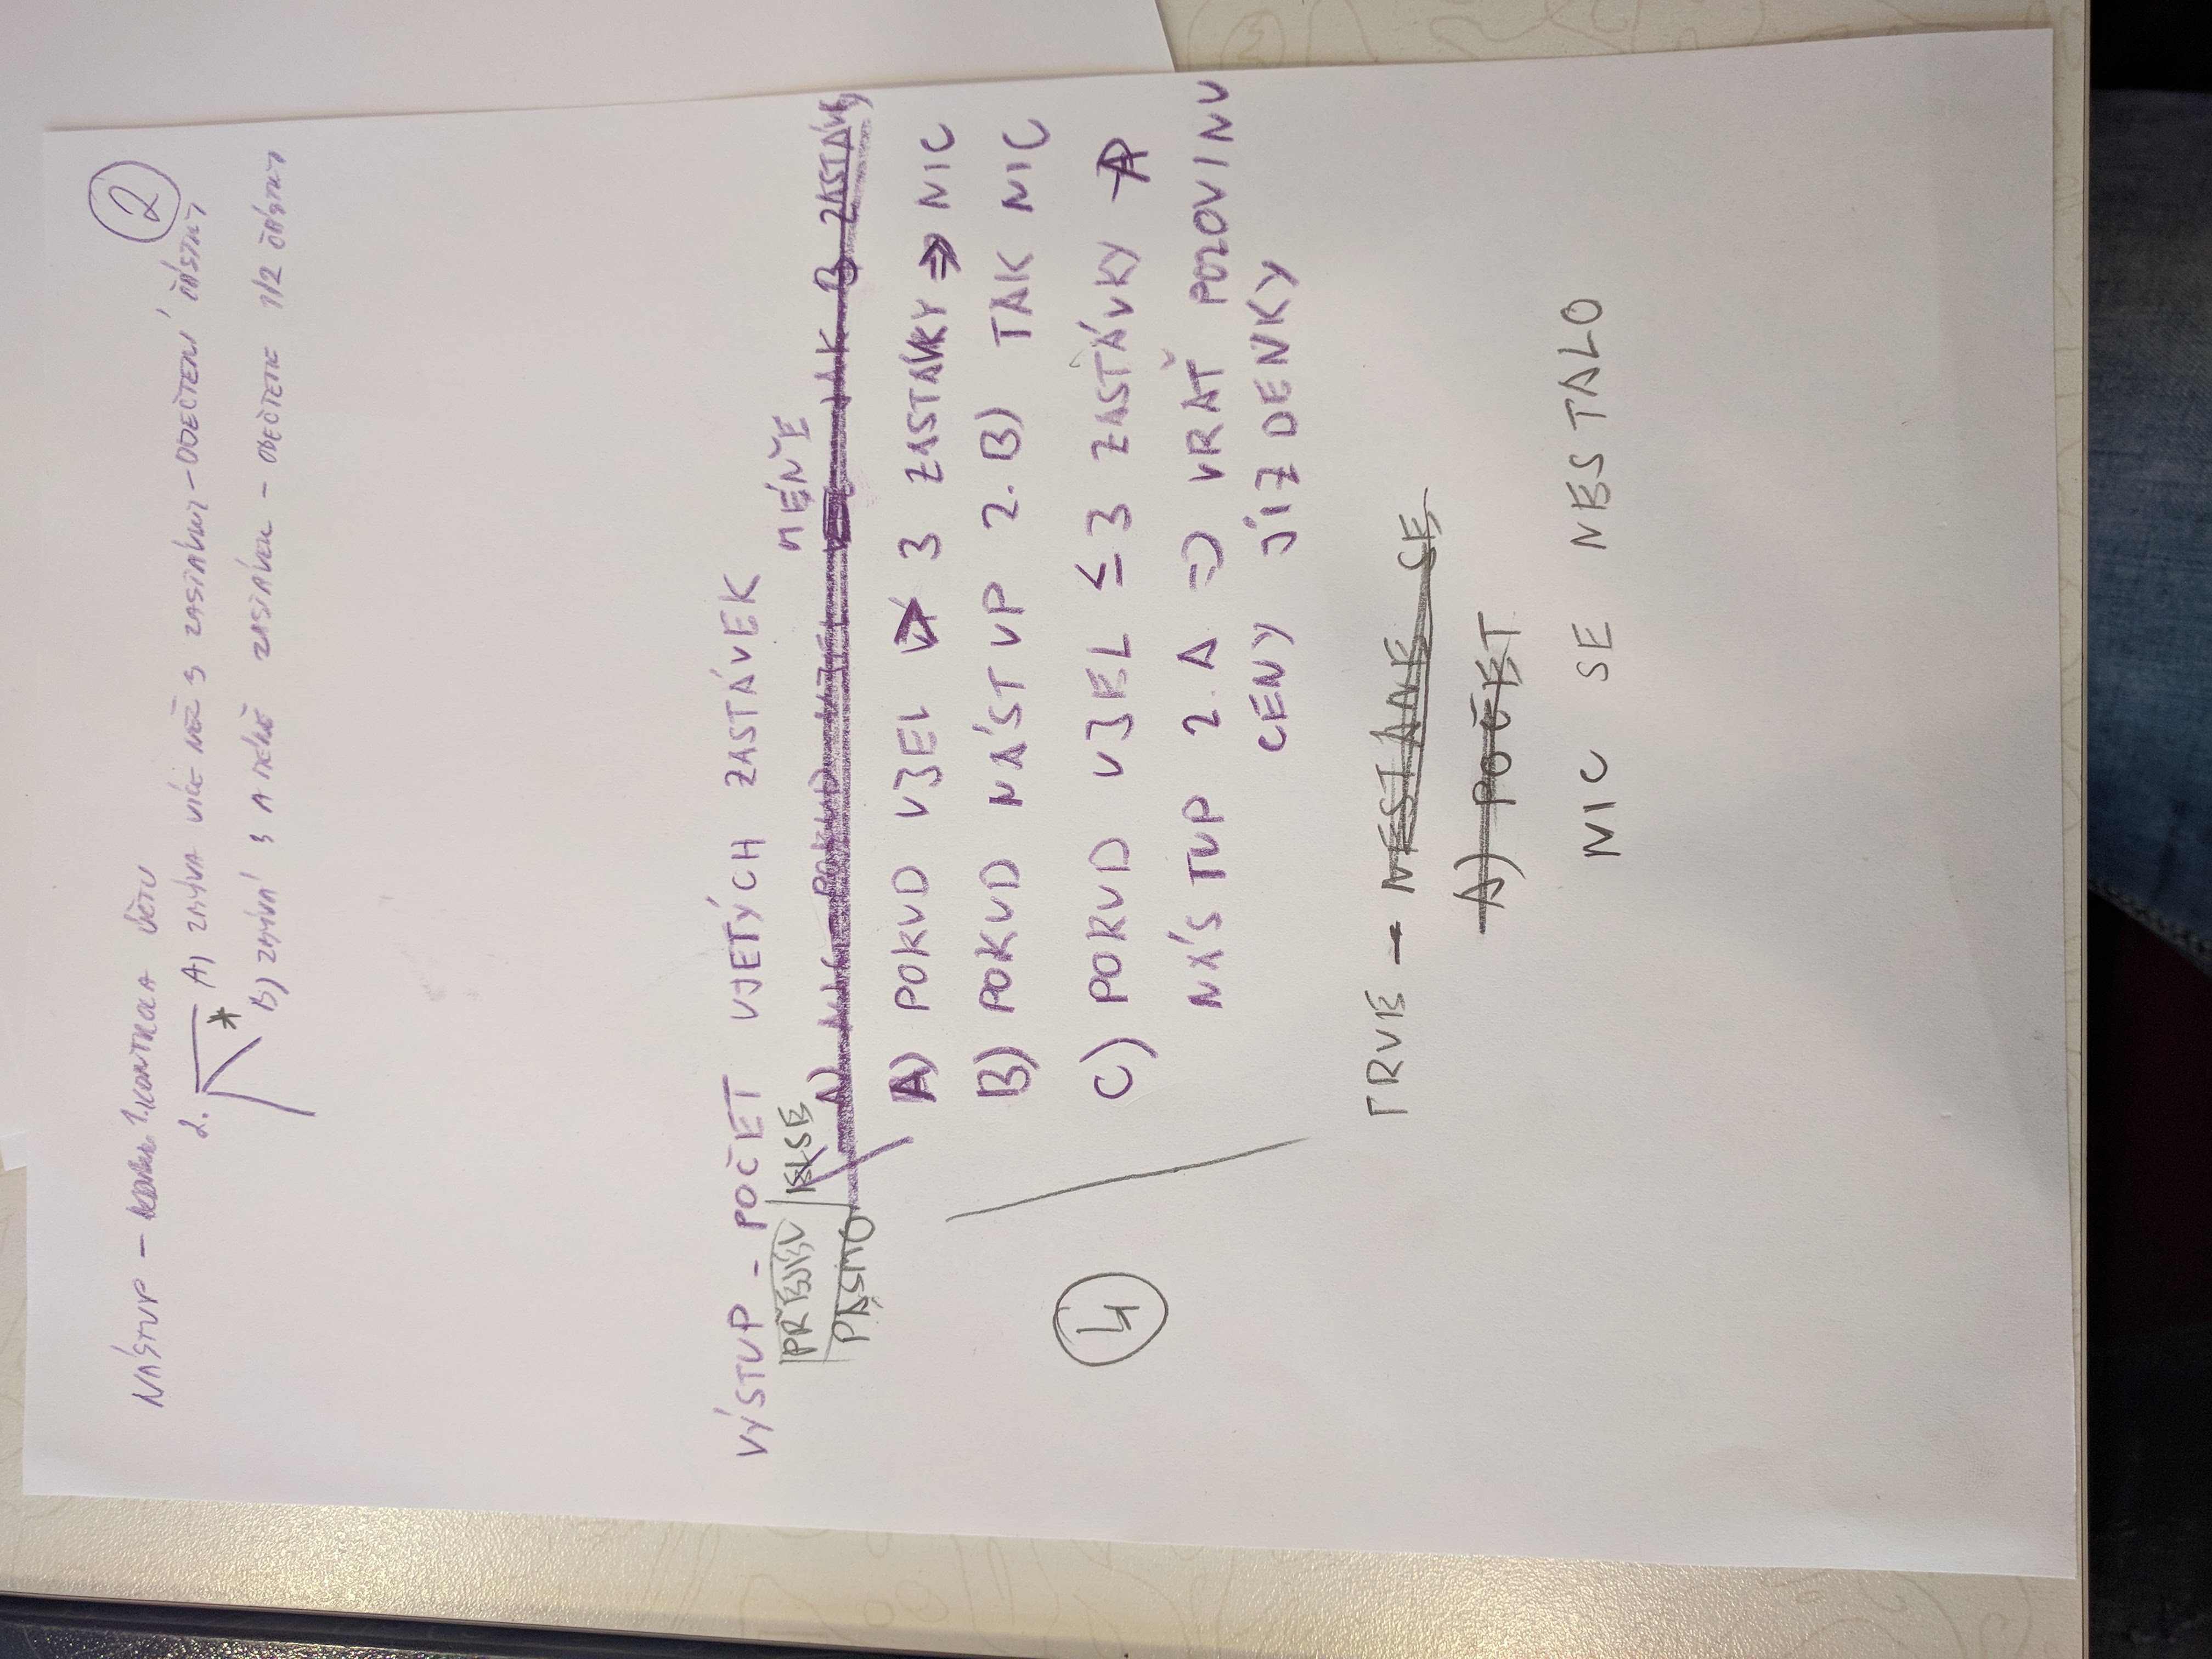 2
NÁSTUP - 1. KONTROLA ÚČTU
2. A) ZBÝVÁ VÍCE NEŽ 3 ZASTÁVKY - ODEČTENÍ ČÁSTKY
* B) ZBÝVÁ 3 A MÉNĚ ZASTÁVEK - ODEČTETE 1/2 ČÁSTKY
VÝSTUP - POČET UJETÝCH ZASTÁVEK
PŘESUN ELSE MÉNĚ
PÁSMO A) POKUD JAK 3 ZASTÁVKY
A) POKUD UJEL > 3 ZASTÁVKY => NIC
B) POKUD NÁSTUP 2.B) TAK NIC
C) POKUD UJEL ≤ 3 ZASTÁVKY A
NÁSTUP 2.A => VRAŤ POLOVINU
CENY JÍZDENKY
4
TRUE - NESTANE SE
A) POČET
NIC SE NESTALO